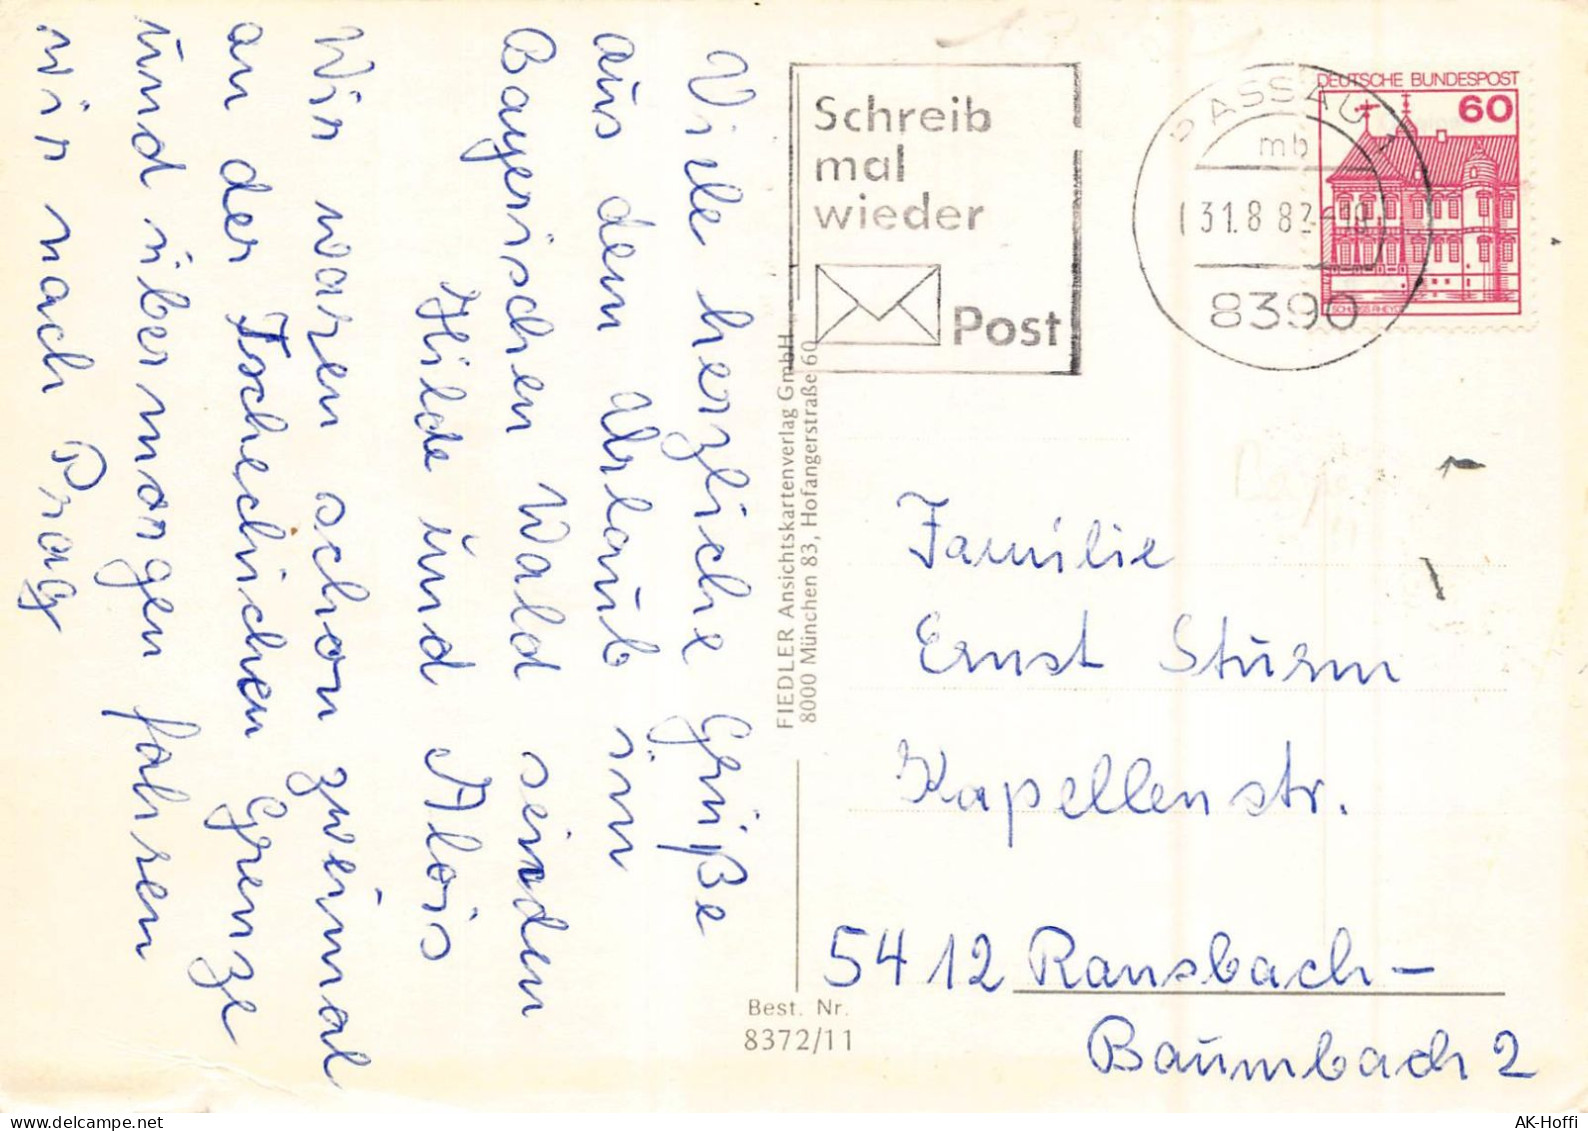 Viele herzliche Grüße
aus dem Urlaub im
Bayerischen Wald senden
Hilde und Alois
Wir waren schon zweimal
an der Tschechichen Grenze
und übermorgen fahren
wir nach Prag
FIEDLER Ansichtskartenverlag GmbH
8000 München 83, Hofangerstraße 60
Best. Nr.
8372/11
Schreib
mal
wieder
Post
PASSAU 1
mb
31.8.82-18
8390
DEUTSCHE BUNDESPOST
60
SCHLOSS RHEYDT
Familie
Ernst Sturm
Kapellenstr.
5412 Ransbach-
Baumbach 2
AK-Hoffi